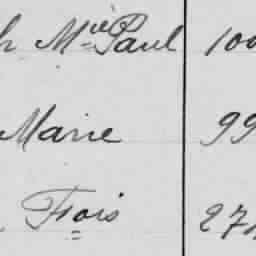 h Mie Paul 100
Marie 99
Fois 27